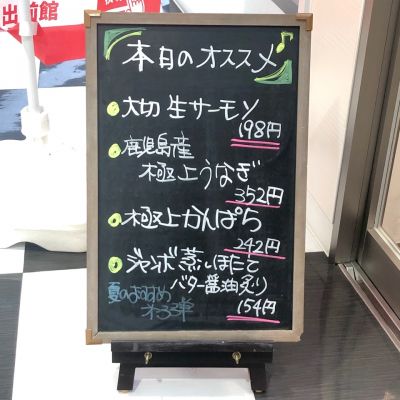 出前館
本日のオススメ
大切生サーモン
198円
鹿児島産
極上うなぎ
352円
極上かんぱち
242円
ジャンボ蒸しほたて
バター醤油炙り
夏のおすすめ
154円